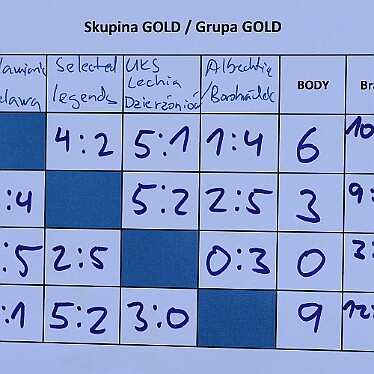 Skupina GOLD / Grupa GOLD
Selected legends UKS Lechia Dzierżoniów Albrechtice /Borohrádek BODY
4:2 5:1 1:4 6 10
:4 5:2 2:5 3 9:
:5 2:5 0:3 0
:1 5:2 3:0 9 12: